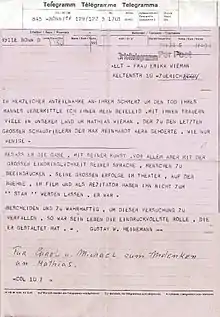 Telegramm Télégramme Telegramma
ZCZC BONN D
Per Post
=ELT= FRAU ERIKA WIEMAN
KELTENSTR 10 =ZUERICH
IN HERZLICHER ANTEILNAHME AN IHREM SCHMERZ UM DEN TOD IHRES
MANNES UEBERMITTLE ICH IHNEN MEIN BEILEID .MIT IHNEN TRAUERN
VIELE IN UNSERER LAND UM MATHIAS WIEMAN , DER ZU DEN LETZTEN
GROSSEN SCHAUSPIELERN DER MAX REINHARDT AERA GEHOERTE . WIE NUR
WENIGE .
BESASS ER DIE GABE , MIT SEINER KUNST , VOR ALLEM ABER MIT DER
GROSSEN EINDRINGLICHKEIT SEINER SPRACHE , MENSCHEN ZU
BEEINDRUCKEN . SEINE GROSSEN ERFOLGE IM THEATER , AUF DER
BUEHNE , IM FILM UND ALS REZITATOR HABEN IHN NICHT ZUM
'' STAR '' WERDEN LASSEN . ER WAR .
BESCHEIDEN UND ZU WAHRHAFTIG , UM DIESER VERSUCHUNG ZU
VERFALLEN . SO WAR SEIN LEBEN DIE EINDRUCKVOLLSTE ROLLE , DIE
ER GESTALTET HAT . . GUSTAV W. HEINEMANN ---
Für u. Michael zum Andenken
an Mathias.
-COL 10